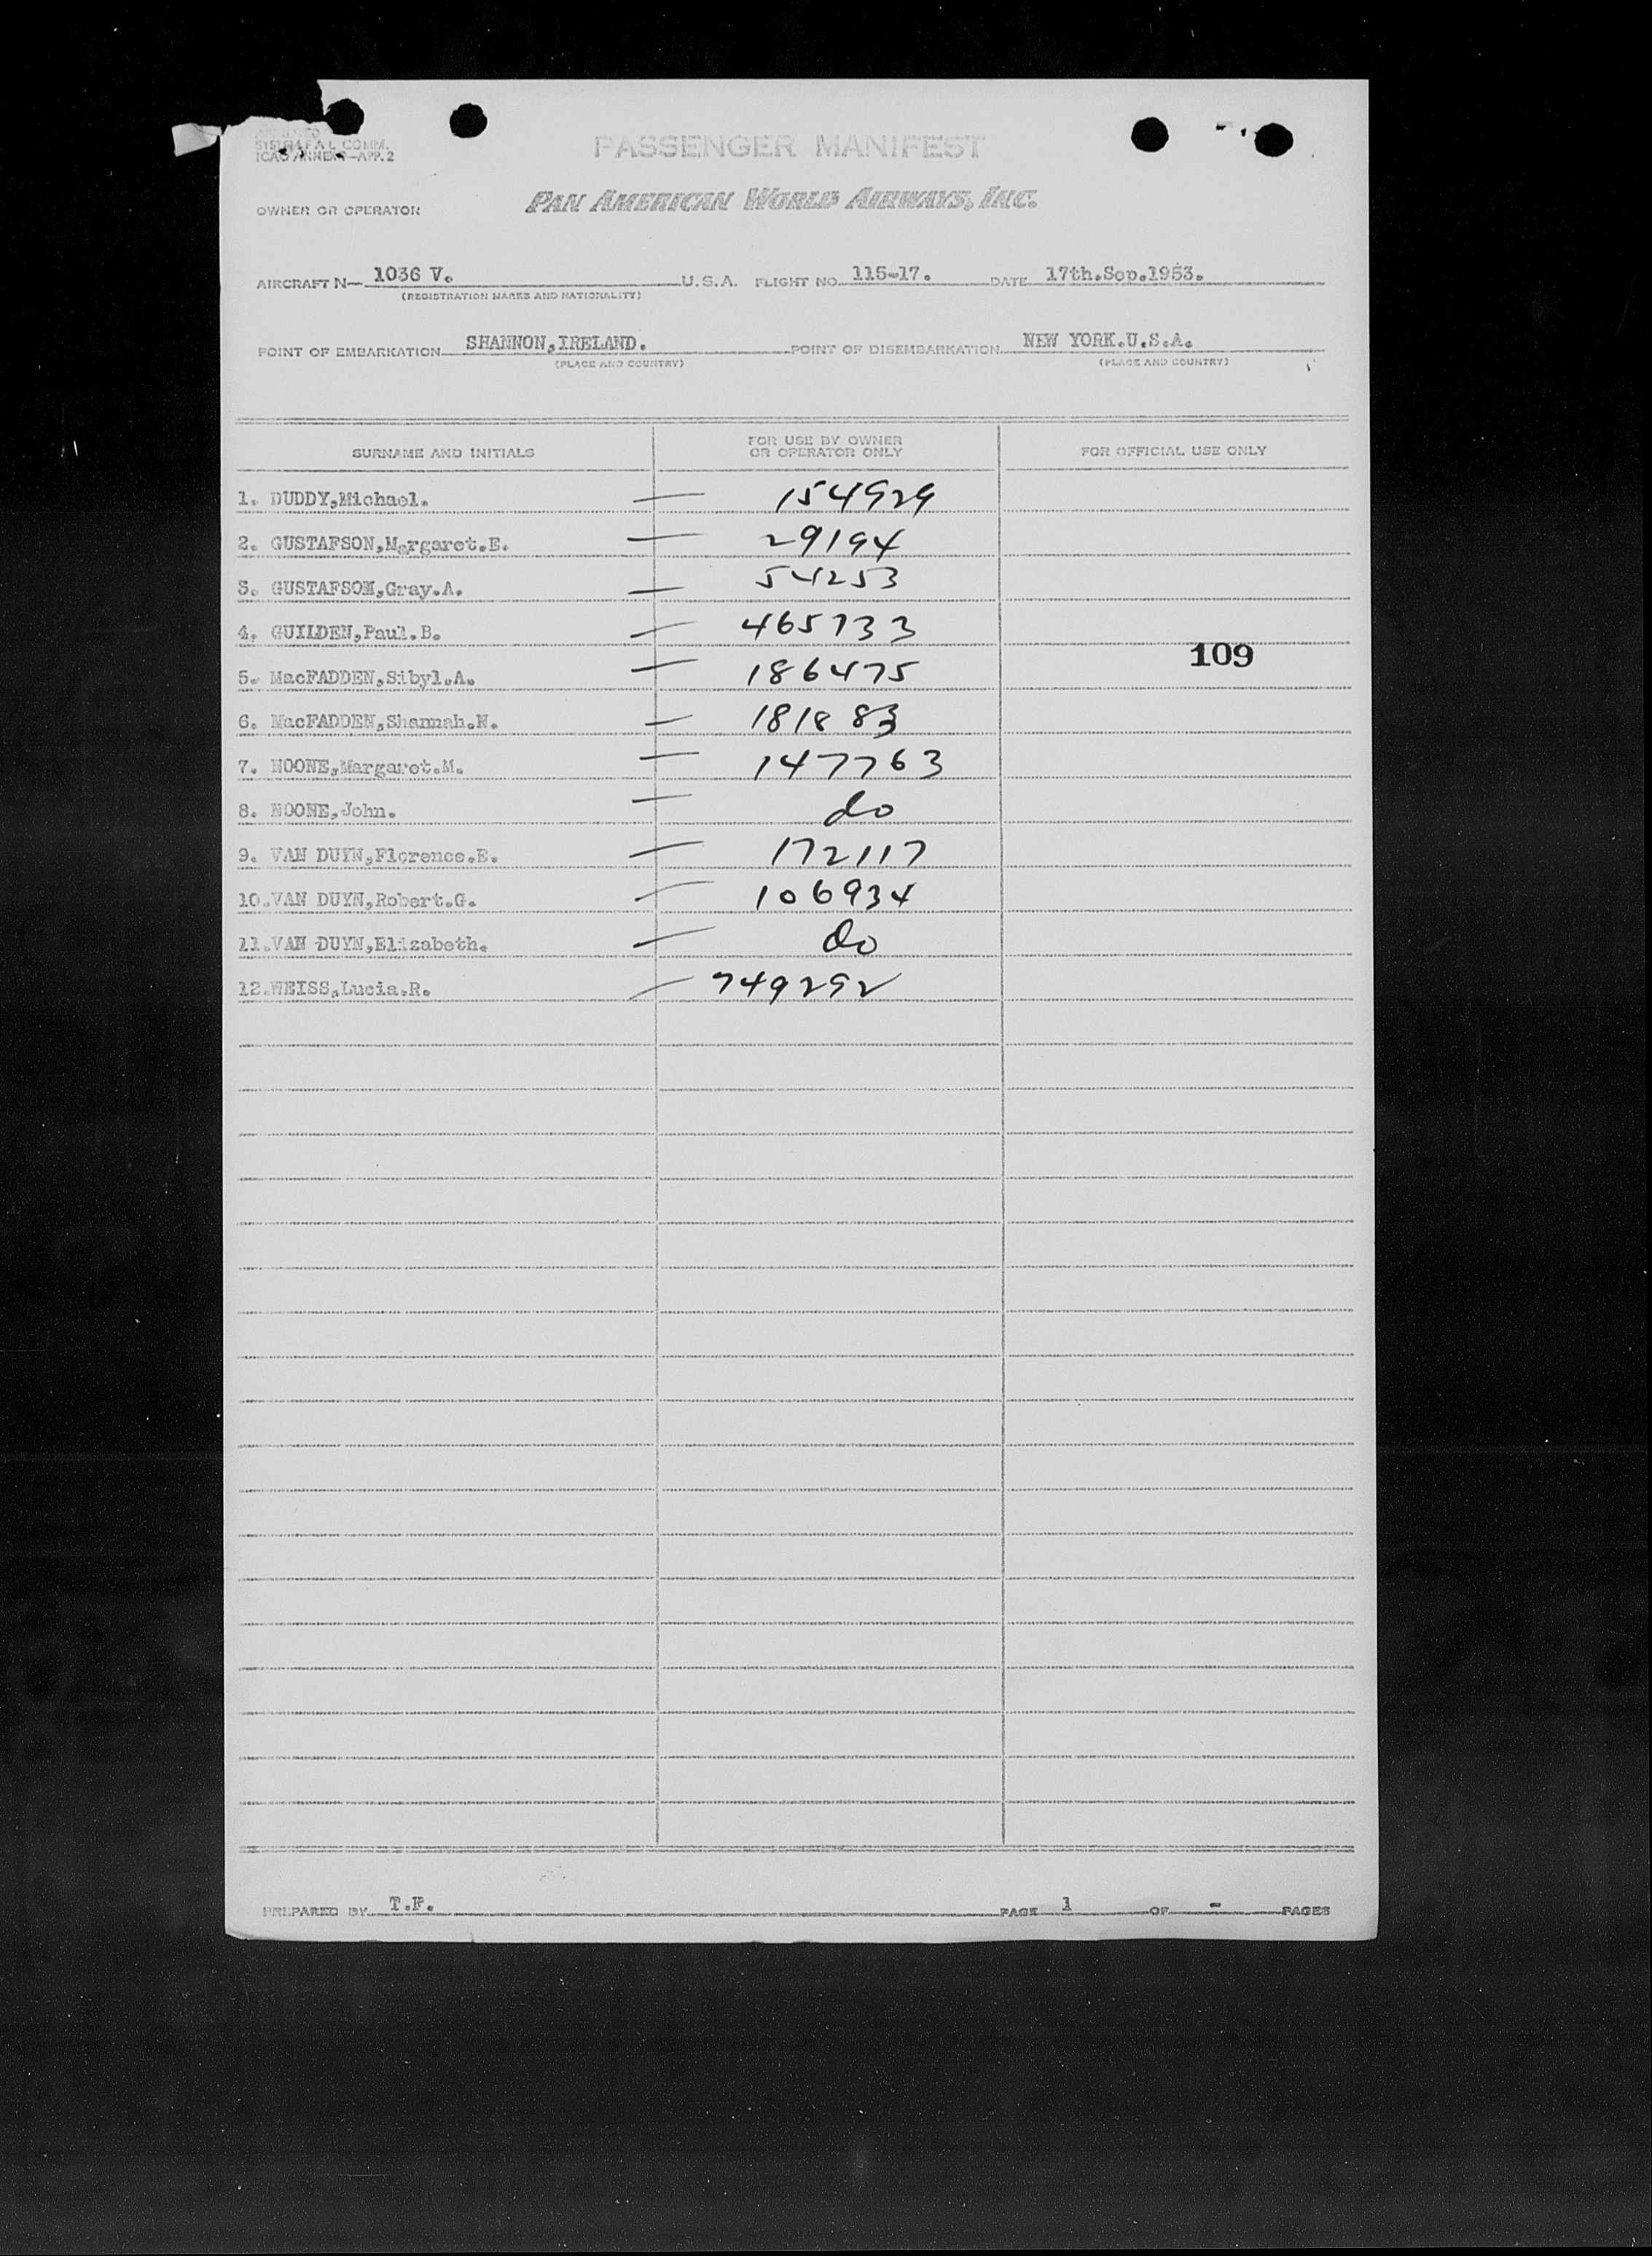 APPROVED
FAL COMM.
ICAO ANNEX 9-APP. 2
PASSENGER MANIFEST
OWNER OR OPERATOR PAN AMERICAN WORLD AIRWAYS, INC.
AIRCRAFT N- 1036 V. U.S.A. FLIGHT NO. 115-17. DATE 17th.Sep.1953.
(REGISTRATION MARKS AND NATIONALITY)
POINT OF EMBARKATION SHANNON,IRELAND. POINT OF DISEMBARKATION NEW YORK.U.S.A.
(PLACE AND COUNTRY) (PLACE AND COUNTRY)
SURNAME AND INITIALS FOR USE BY OWNER OR OPERATOR ONLY FOR OFFICIAL USE ONLY
1. DUDDY,Michael. — 154929
2. GUSTAFSON,Margaret.E. — 29194
3. GUSTAFSON,Gray.A. — 54253
4. GUILDEN,Paul.B. — 465733
109
5. MacFADDEN,Sibyl.A. — 186475
6. MacFADDEN,Shannah.N. — 181883
7. NOONE,Margaret.M. — 147763
8. NOONE,John. — do
9. VAN DUYN,Florence.E. — 172117
10.VAN DUYN,Robert.G. — 106934
11.VAN DUYN,Elizabeth. — do
12.WEISS,Lucia.R. — 749292
PREPARED BY T.F. PAGE 1 OF - PAGES